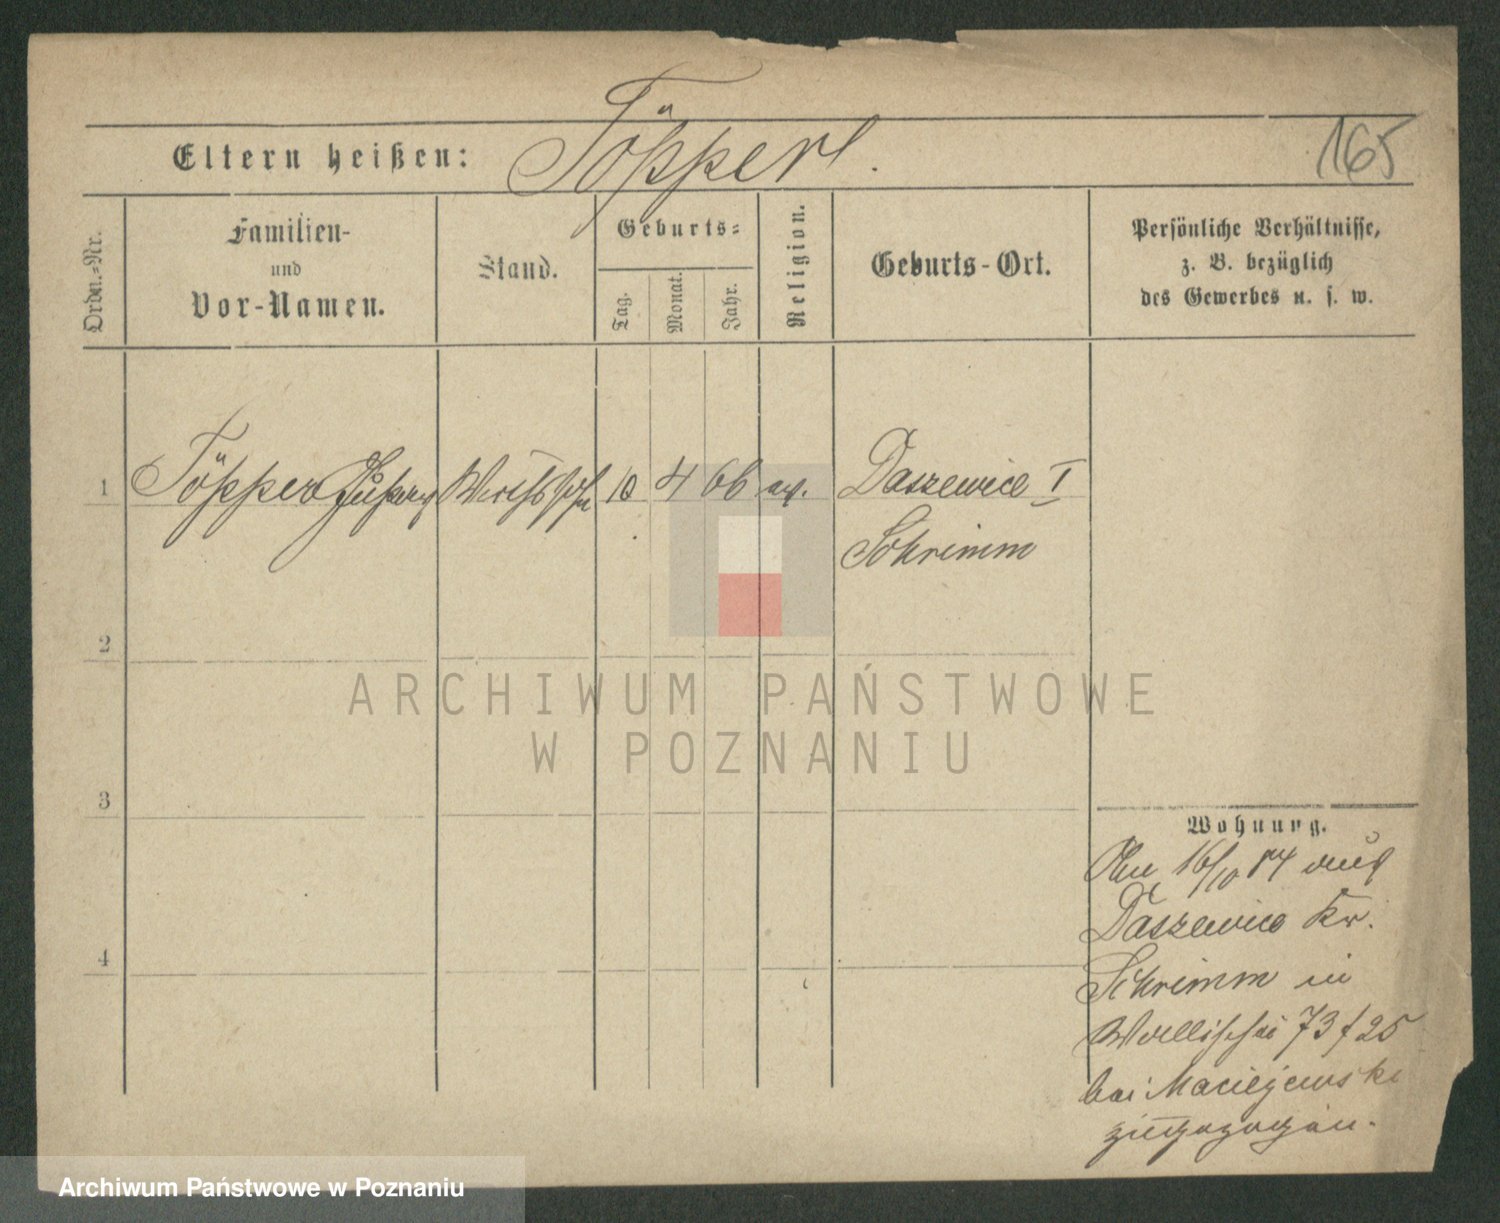 165
Eltern heißen: Töpperl.
Ordn.-Nr.
Familien-
und
Vor-Namen.
Stand.
Geburts-
Tag.
Monat.
Jahr.
Religion.
Geburts-Ort.
Persönliche Verhältnisse,
z. B. bezüglich
des Gewerbes u. s. w.
1 Töpper 10 4 66 ev. Daszewice I
Schrimm
2
3
4
Wohnung.
16/10 84 aus
Daszewice Kr.
Schrimm in
Wallischei 73 / 25
bei Maciejewski
zugezogen.
ARCHIWUM PAŃSTWOWE
W POZNANIU
Archiwum Państwowe w Poznaniu